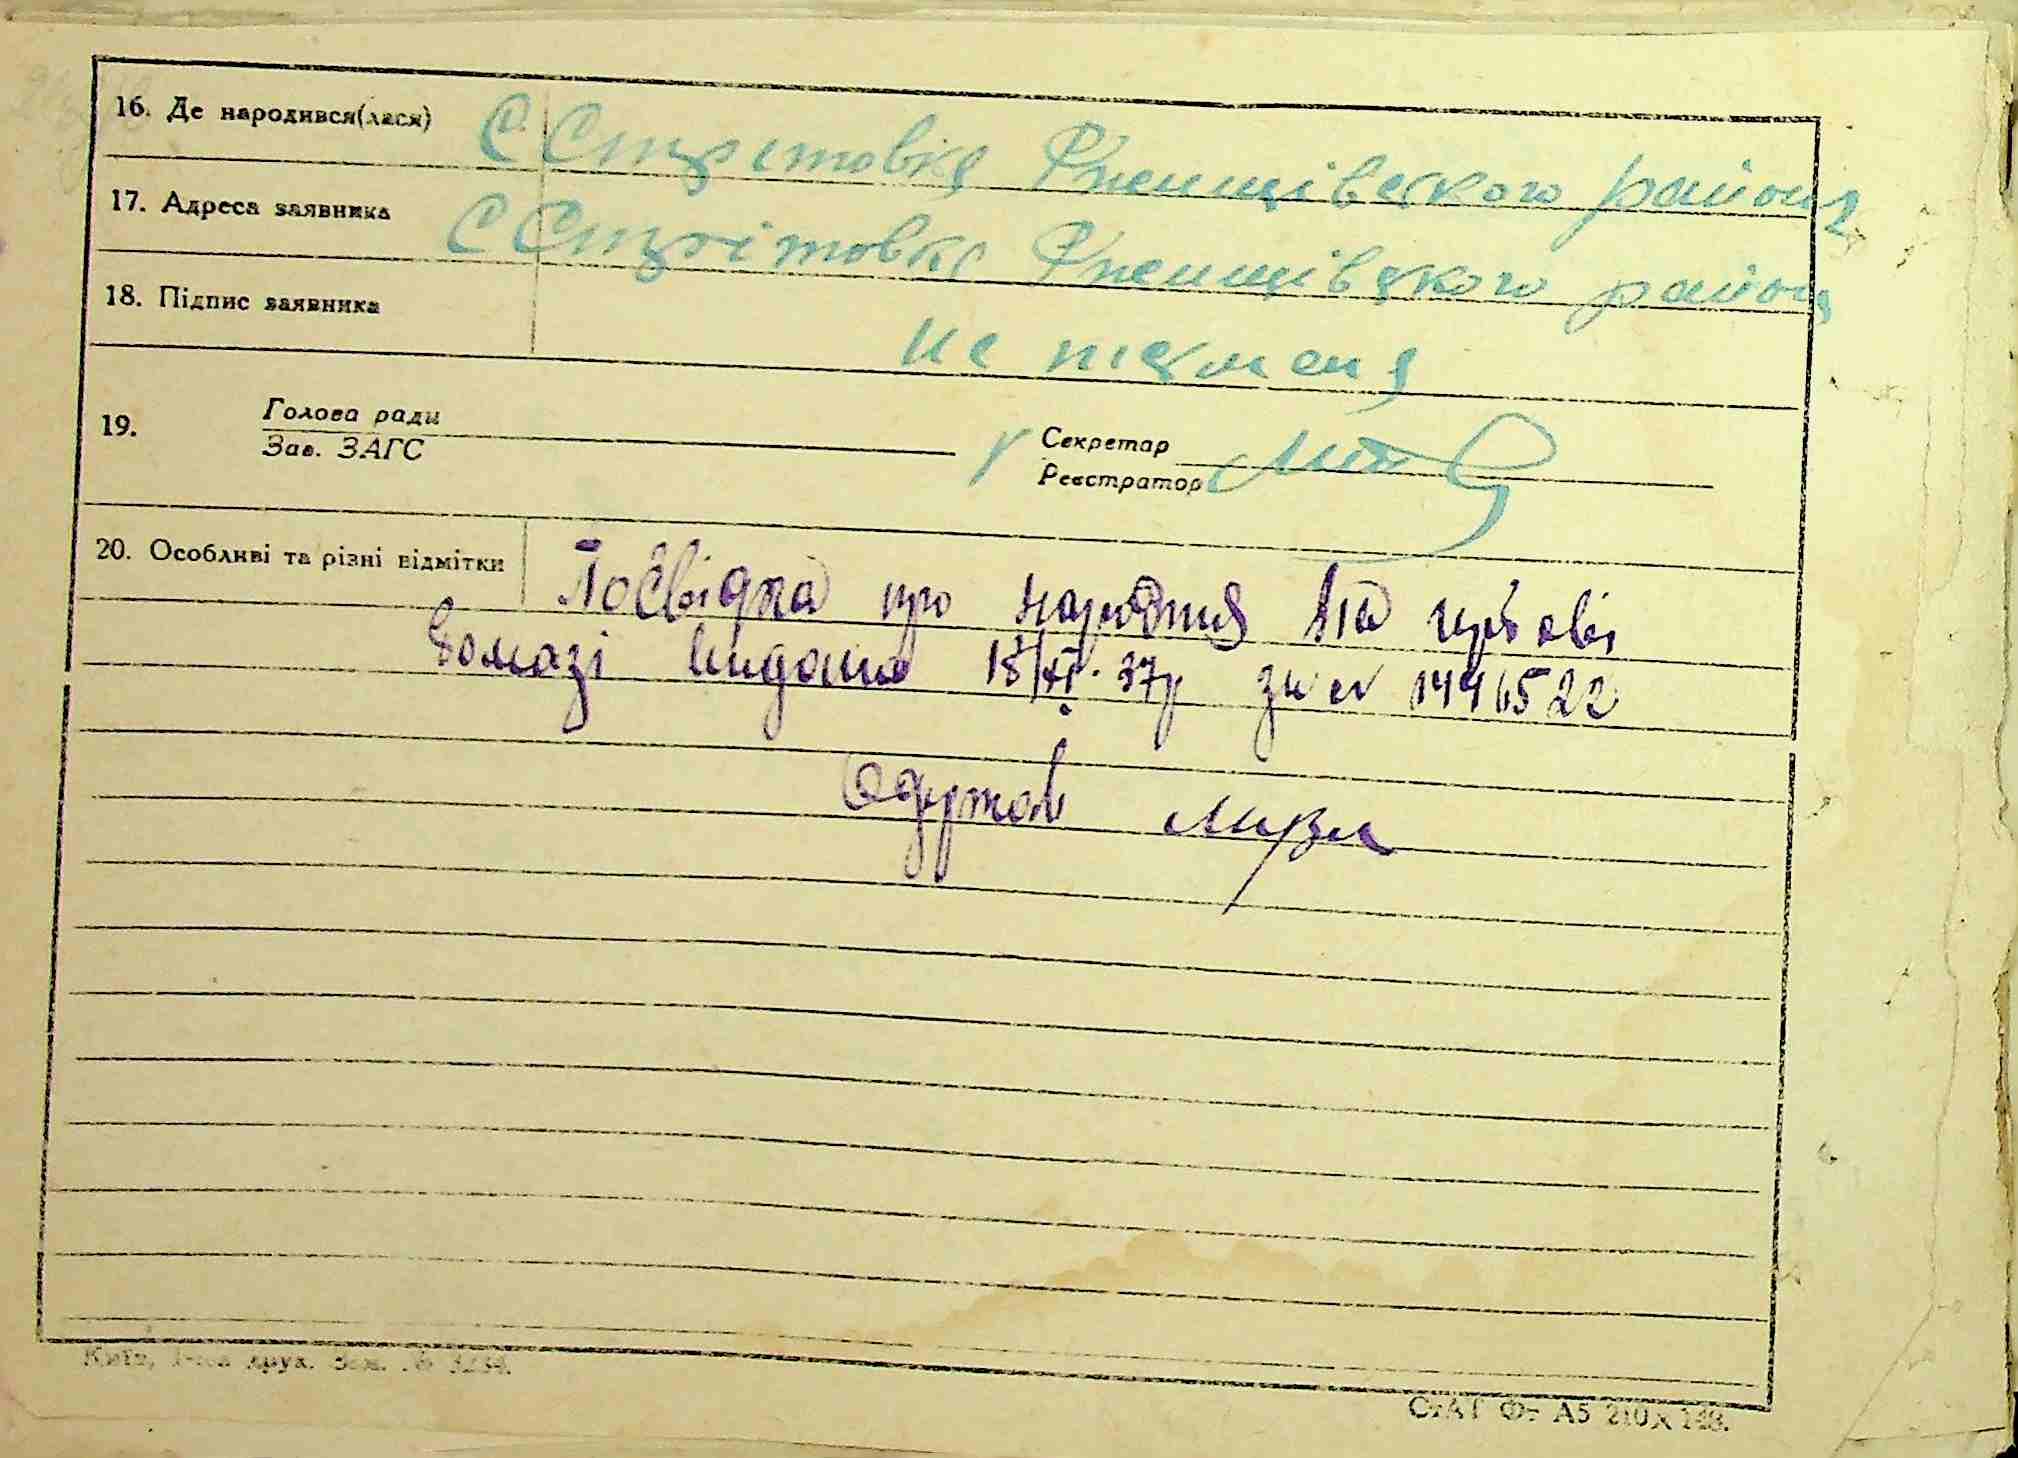 16. Де народився(лася) С Стрітовка Ржищівского району
17. Адреса заявника С Стрітовка Ржищівского району
18. Підпис заявника не письмена
Голова ради
19. Секретар
Зав. ЗАГС
Реєстратор
20. Особливі та різні відмітки Посвідка про народження
видана 18/XI. 37р за № 1446522
Одержав
Київ, друк. Зам. № 3234.
СтАТ Фт А5 210х148.